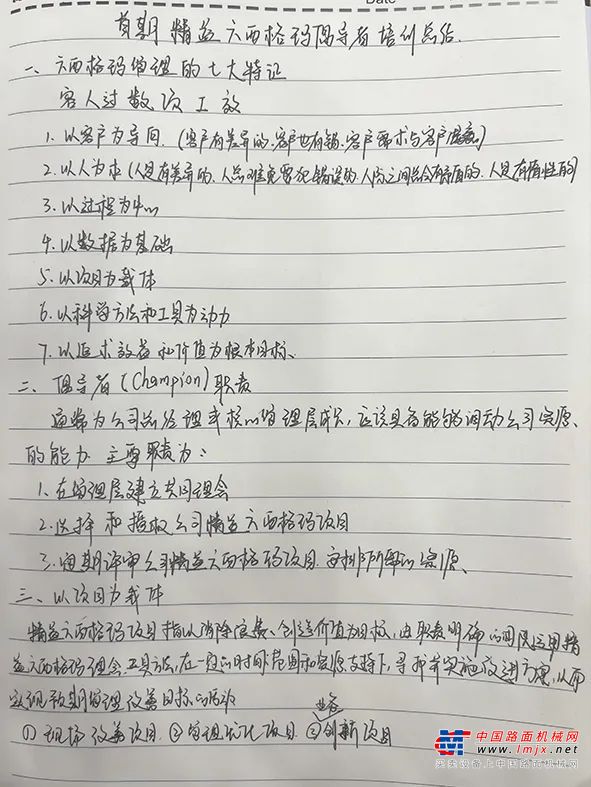 Date
首期精益六西格玛倡导者培训总结.
一、六西格玛管理的七大特证
客人过数项工效
1. 以客户为导向. (客户有差异的. 客户也有错. 客户需求与客户
2. 以人为本 (人是有差异的、人总难免要犯错误的 人与人之间总会有矛盾的、人是有惰性的)
3. 以过程为中心
4. 以数据为基础
5. 以项目为载体
6. 以科学方法和工具为动力
7. 以追求效益和价值为根本目标、
二、倡导者 (Champion) 职责
通常为公司总经理或核心管理层成员, 应该具备能够调动公司资源、
的能力. 主要职责为:
1. 在管理层建立共同理念
2. 选择和授权公司精益六西格玛项目
3. 定期评审公司精益六西格玛项目. 安排所需的资源、
三、以项目为载体
精益六西格玛项目指以消除浪费、创造价值为目标, 由职责明确的团队运用精
益六西格玛理念、工具方法, 在一定的时间、范围和资源支持下, 寻找并实施改进方案, 从而
实现预期管理改善目标的活动
业务
① 现场改善项目. ② 管理优化项目 ③ 创新项目
中国路面机械网
www.lmjx.net
买卖设备上中国路面机械网